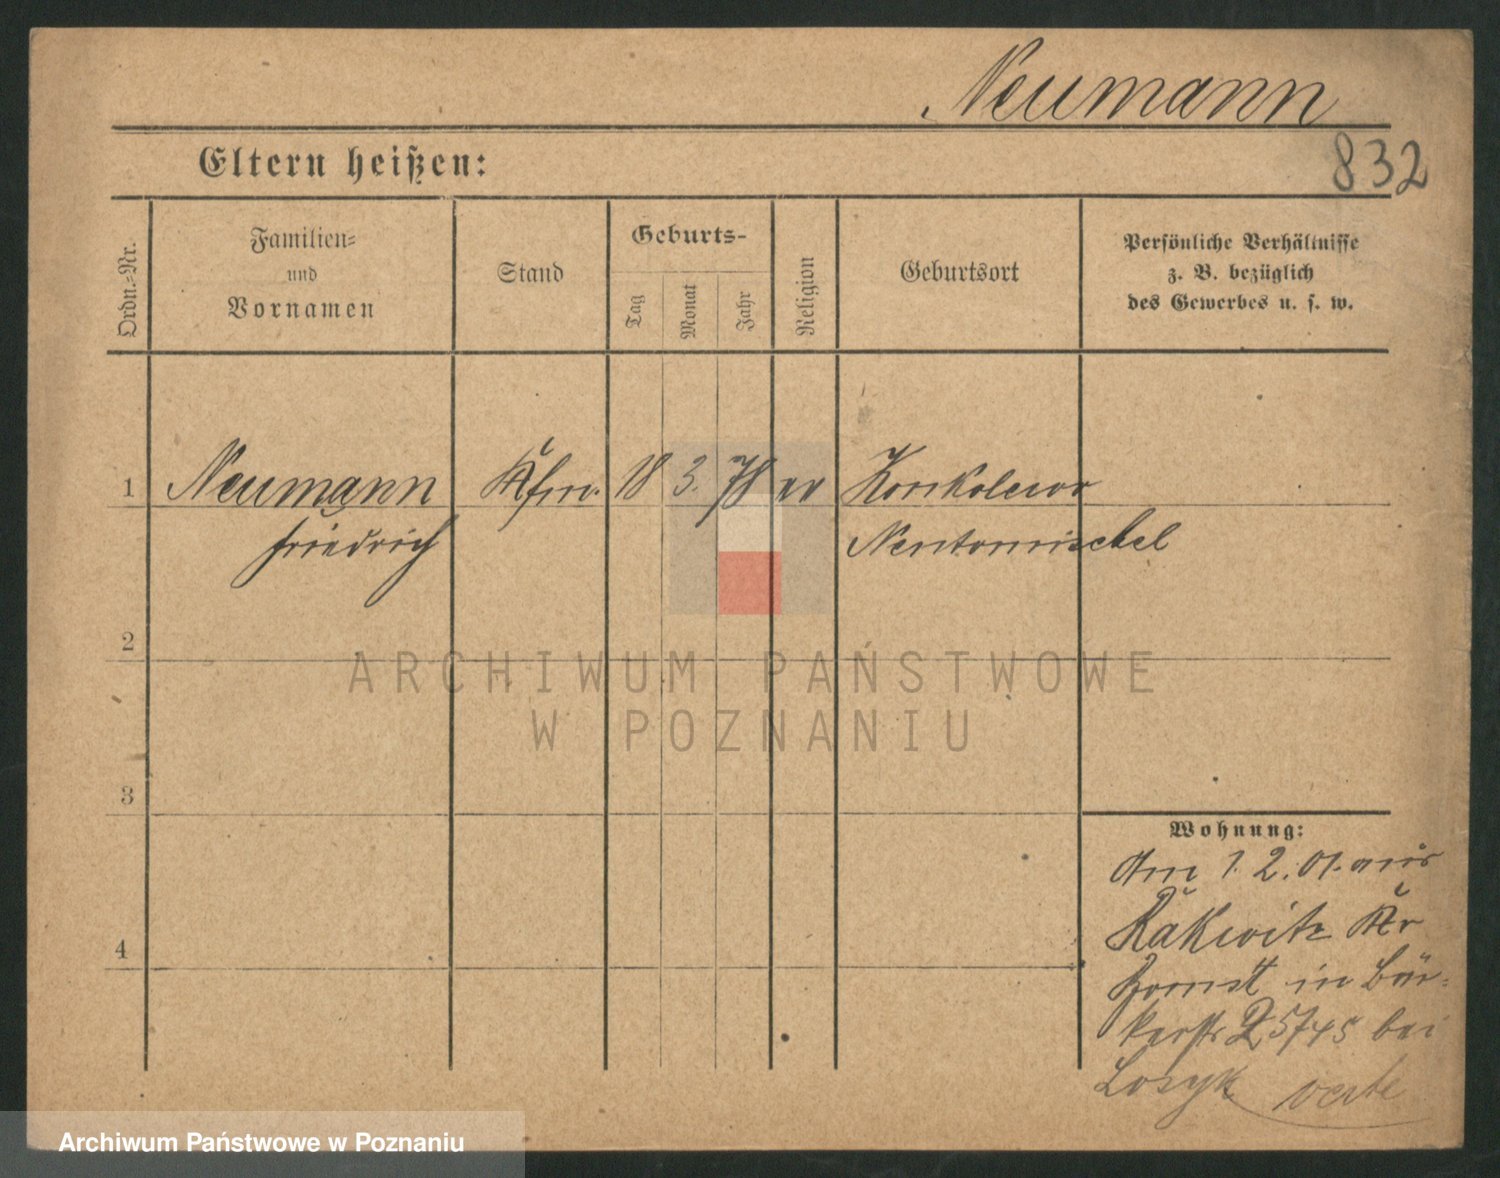 Neumann
832
Eltern heißen:
Ordn.-Nr.
Familien-
und
Vornamen
Stand
Geburts-
Tag
Monat
Jahr
Religion
Geburtsort
Persönliche Verhältnisse
z. B. bezüglich
des Gewerbes u. s. w.
1 Neumann Kfm. 18 3. 78 ev Konkolewo
Friedrich Neutomischel
2
3
4
Wohnung:
Am 1. 2. 01. aus
Rakwitz Kr
Bomst in Bäk-
kerstr 25 bei
verte
ARCHIWUM PAŃSTWOWE
W POZNANIU
Archiwum Państwowe w Poznaniu